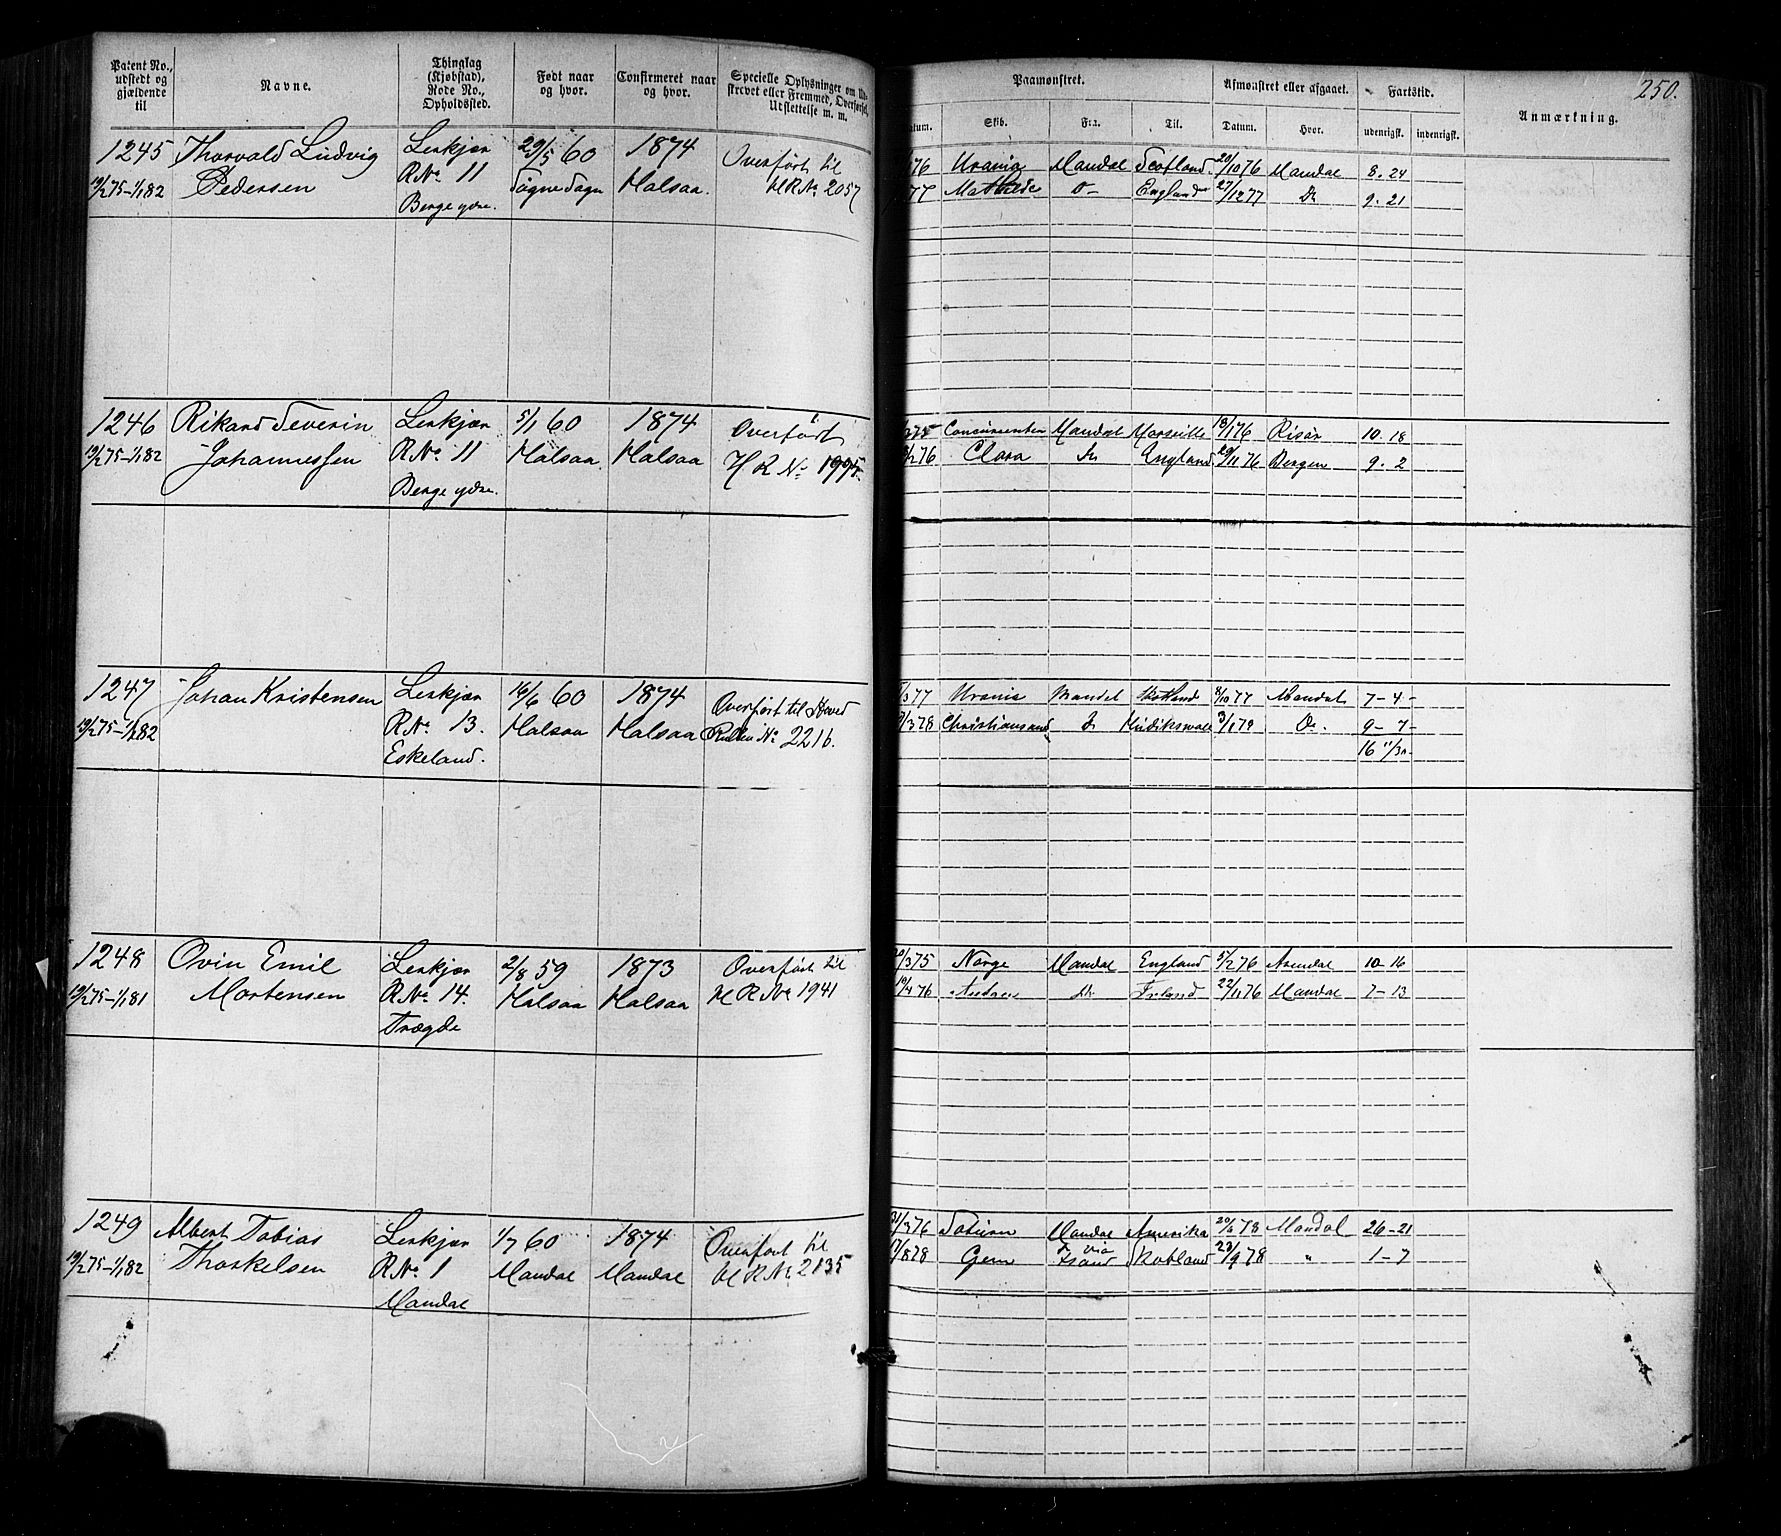 Patent No., udstedt og gjældende til
Navne.
Thinglag (Kjøbstad), Rode No., Opholdssted.
Født naar og hvor.
Confirmeret naar og hvor.
Specielle Oplysninger om Udskrevet eller Fremmed, Overførsel, Udslettelse m. m.
Paamønstret.
Afmønstret eller afgaaet.
Fartstid.
Anmærkning.
250.
Datum.
Skib.
Fra.
Til.
Datum.
Hvor.
udenrigsk.
indenrigsk.
1245 Thorvald Ludvig Leskjær 29/5 60 1874 Overført til
19/2 75-1/1 82 Pedersen R No. 11 Søgne Sogn Halsaa. H R No 2057
Berge ydre.
76 Urania Mandal Scotland. 20/10 76 Mandal 8. 24
77 Mathilde D- England 27/12 77 Do 9. 21
1246 Rikard Severin Leskjær 5/1 60 1874 Overført
19/2 75-1/1 82 Johannessen R No. 11 Halsaa Halsaa H R No 1995.
Berge ydre.
Concurrenten Mandal Marseille 13/1 76 Risør 10. 18
/2 76 Clara Do England 29/11 76 Bergen 9. 2
1247 Johan Kristensen Leskjær 16/6 60 1874 Overført til Hoved
19/2 75-1/1 82 R No. 13. Halsaa Halsaa Rullen No 2216.
Eskeland.
/3 77 Urania Mandal Skotland 8/10 77 Mandal 7-4-
/3 78 Christiansand Do Hudikswall 3/1 79 Do. 9-7-
16 11/30
1248 Ovin Emil Leskjær 2/8 59 1873 Overført til
19/2 75-1/1 81 Mortensen R No. 14. Halsaa Halsaa H R No 1941
Trægde
/3 75 Norge Mandal England 5/2 76 Arendal 10-16
19/4 76 Do 22/11 76 Mandal 7-13
1249 Albert Tobias Leskjær 1/7 60 1874 Overført til
19/2 75-1/1 82 Thorkelsen R No. 1 Mandal Mandal H R No 2135
Mandal
31/3 76 Saturn Mandal Amerika 20/6 78 Mandal 26-21
/8 78 Gem via Skotland 23/9 78 " 1-7